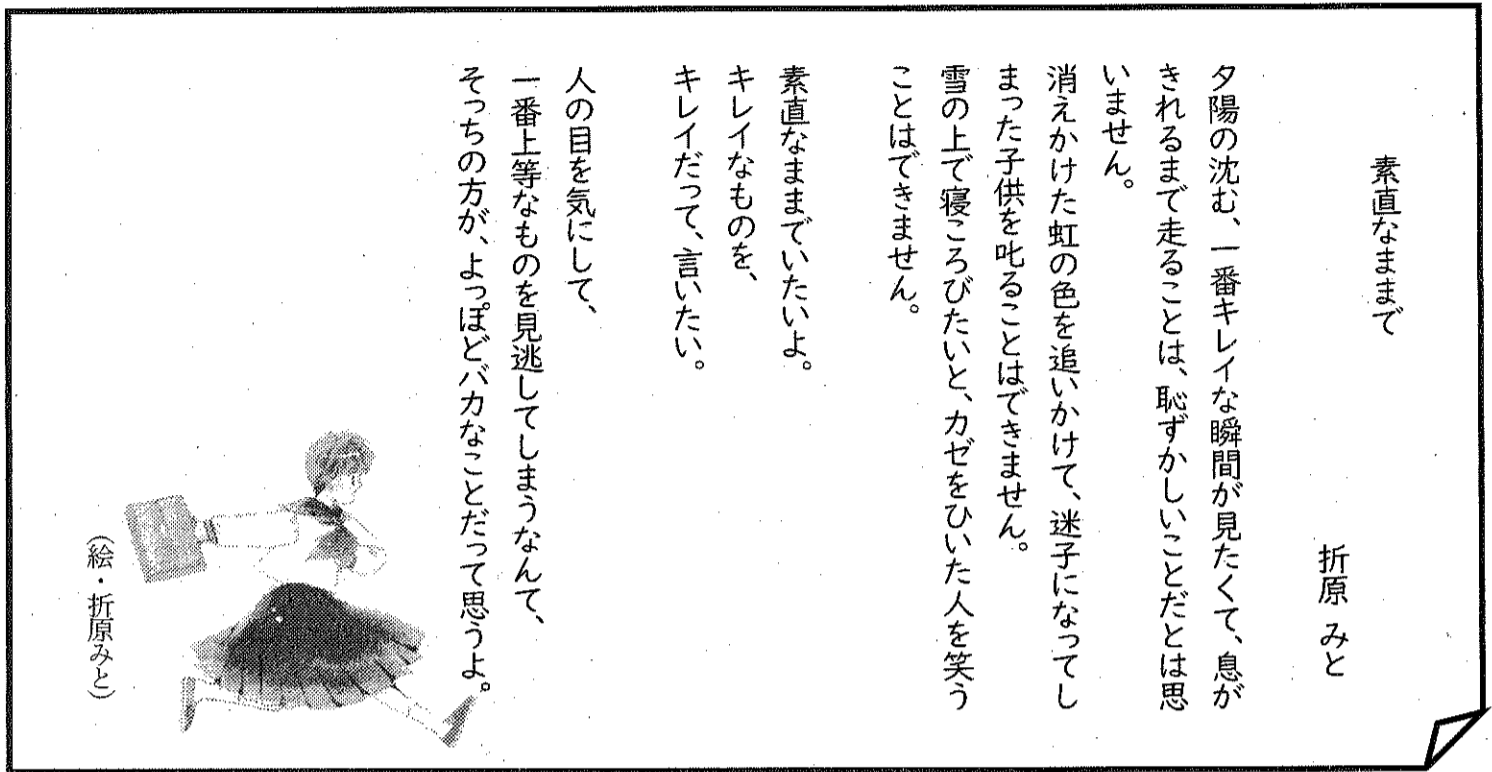 素直なままで
折原 みと
夕陽の沈む、一番キレイな瞬間が見たくて、息が
きれるまで走ることは、恥ずかしいことだとは思
いません。
消えかけた虹の色を追いかけて、迷子になってし
まった子供を叱ることはできません。
雪の上で寝ころびたいと、カゼをひいた人を笑う
ことはできません。
素直なままでいたいよ。
キレイなものを、
キレイだって、言いたい。
人の目を気にして、
一番上等なものを見逃してしまうなんて、
そっちの方が、よっぽどバカなことだって思うよ。
(絵・折原みと)